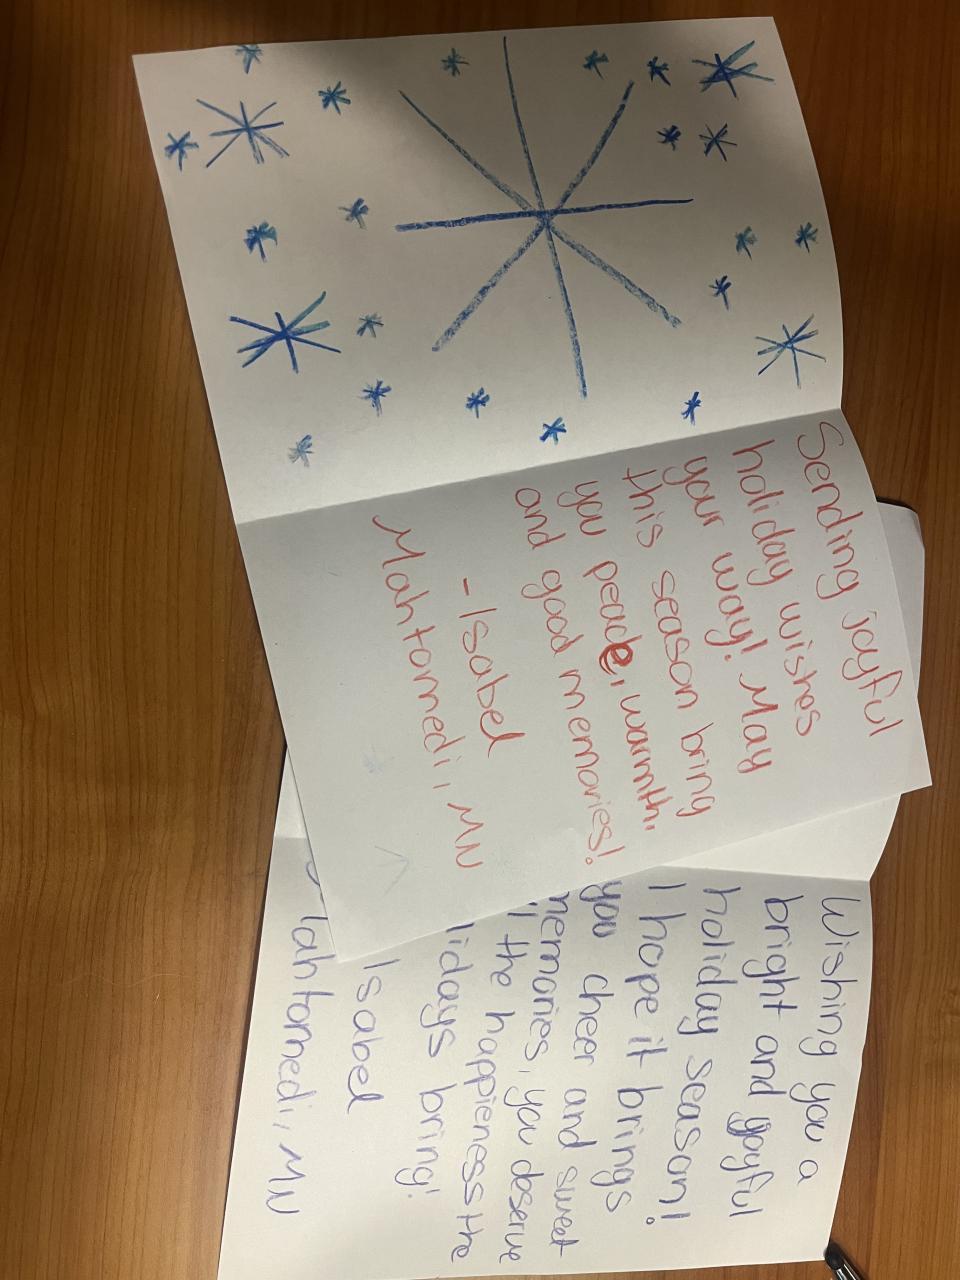 Sending joyful
holiday wishes
your way! May
this season bring
you peace, warmth,
and good memories!
- Isabel
Mahtomedi, MN
Wishing you a
bright and joyful
holiday season!
I hope it brings
you cheer and sweet
memories, you deserve
the happieness the
bring!
Isabel
MN